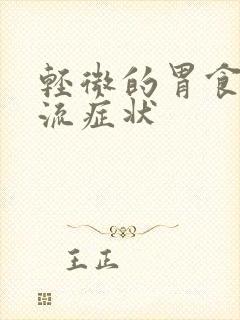 轻微的胃食
流症状
王正